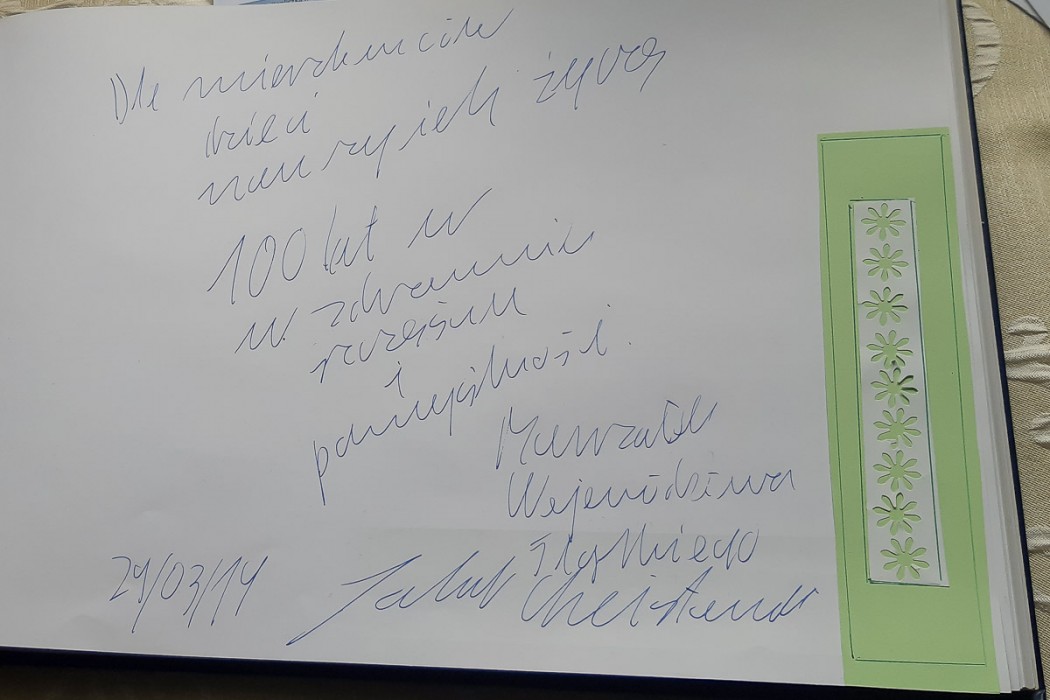 Dla mieszkańców
dzieci
nauczycieli życzę
100 lat w
w zdrowiu
szczęściu
i
pomyślności.
Marszałek
Województwa
Śląskiego
29/03/19 Jakub Chełstowski